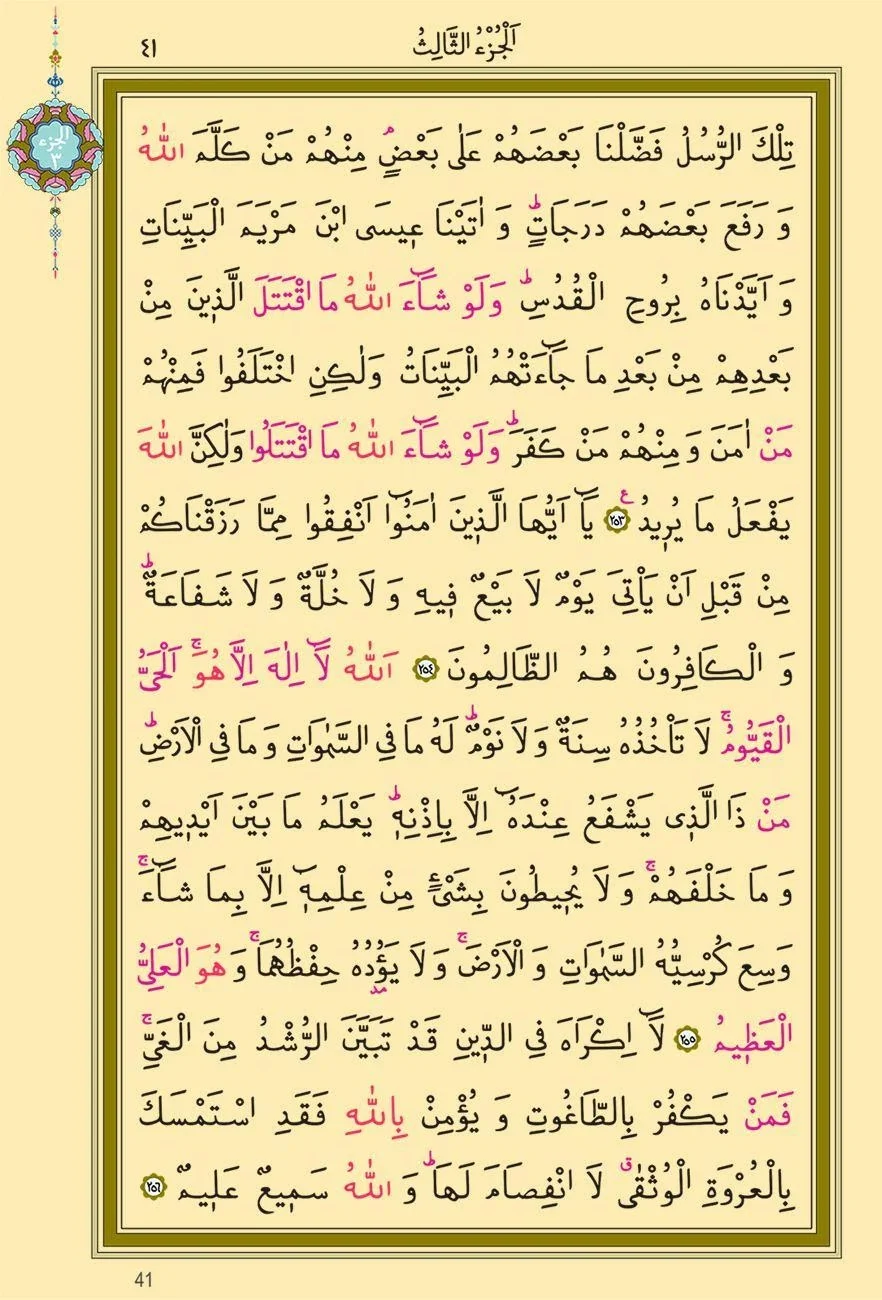 اَلْجُزْءُ الثَّالِثُ
٤١
الجزء
٣
تِلْكَ الرُّسُلُ فَضَّلْنَا بَعْضَهُمْ عَلٰى بَعْضٍۢ مِنْهُمْ مَنْ كَلَّمَ اللّٰهُ
وَ رَفَعَ بَعْضَهُمْ دَرَجَاتٍۜ وَ اٰتَيْنَا ع۪يسَى ابْنَ مَرْيَمَ الْبَيِّنَاتِ
وَ اَيَّدْنَاهُ بِرُوحِ الْقُدُسِۜ وَلَوْ شَٓاءَ اللّٰهُ مَا اقْتَتَلَ الَّذ۪ينَ مِنْ
بَعْدِهِمْ مِنْ بَعْدِ مَا جَٓاءَتْهُمُ الْبَيِّنَاتُ وَلٰكِنِ اخْتَلَفُوا فَمِنْهُمْ
مَنْ اٰمَنَ وَ مِنْهُمْ مَنْ كَفَرَۜ وَلَوْ شَٓاءَ اللّٰهُ مَا اقْتَتَلُوا وَلٰكِنَّ اللّٰهَ
يَفْعَلُ مَا يُر۪يدُ ع ﴿٢٥٣﴾ يَٓا اَيُّهَا الَّذ۪ينَ اٰمَنُٓوا اَنْفِقُوا مِمَّا رَزَقْنَاكُمْ
مِنْ قَبْلِ اَنْ يَأْتِىَ يَوْمٌ لَا بَيْعٌ ف۪يهِ وَ لَا خُلَّةٌ وَ لَا شَفَاعَةٌۜ
وَ الْكَافِرُونَ هُمُ الظَّالِمُونَ ﴿٢٥٤﴾ اَللّٰهُ لَٓا اِلٰهَ اِلَّا هُوَۚ اَلْحَىُّ
الْقَيُّومُۚ لَا تَأْخُذُهُ سِنَةٌ وَ لَا نَوْمٌۜ لَهُ مَا فِى السَّمٰوَاتِ وَ مَا فِى الْاَرْضِۜ
مَنْ ذَا الَّذ۪ى يَشْفَعُ عِنْدَهُٓ اِلَّا بِاِذْنِه۪ۜ يَعْلَمُ مَا بَيْنَ اَيْد۪يهِمْ
وَ مَا خَلْفَهُمْۚ وَ لَا يُح۪يطُونَ بِشَىْءٍ مِنْ عِلْمِه۪ٓ اِلَّا بِمَا شَٓاءَۚ
وَسِعَ كُرْسِيُّهُ السَّمٰوَاتِ وَ الْاَرْضَۚ وَ لَا يَؤُ۫دُهُ حِفْظُهُمَاۚ وَ هُوَ الْعَلِىُّ
الْعَظ۪يمُ ﴿٢٥٥﴾ لَٓا اِكْرَاهَ فِى الدّ۪ينِ قَدْ تَبَيَّنَ الرُّشْدُ مِنَ الْغَىِّۚ
فَمَنْ يَكْفُرْ بِالطَّاغُوتِ وَ يُؤْمِنْ بِاللّٰهِ فَقَدِ اسْتَمْسَكَ
بِالْعُرْوَةِ الْوُثْقٰىۗ لَا انْفِصَامَ لَهَاۜ وَ اللّٰهُ سَم۪يعٌ عَل۪يمٌ ﴿٢٥٦﴾
41